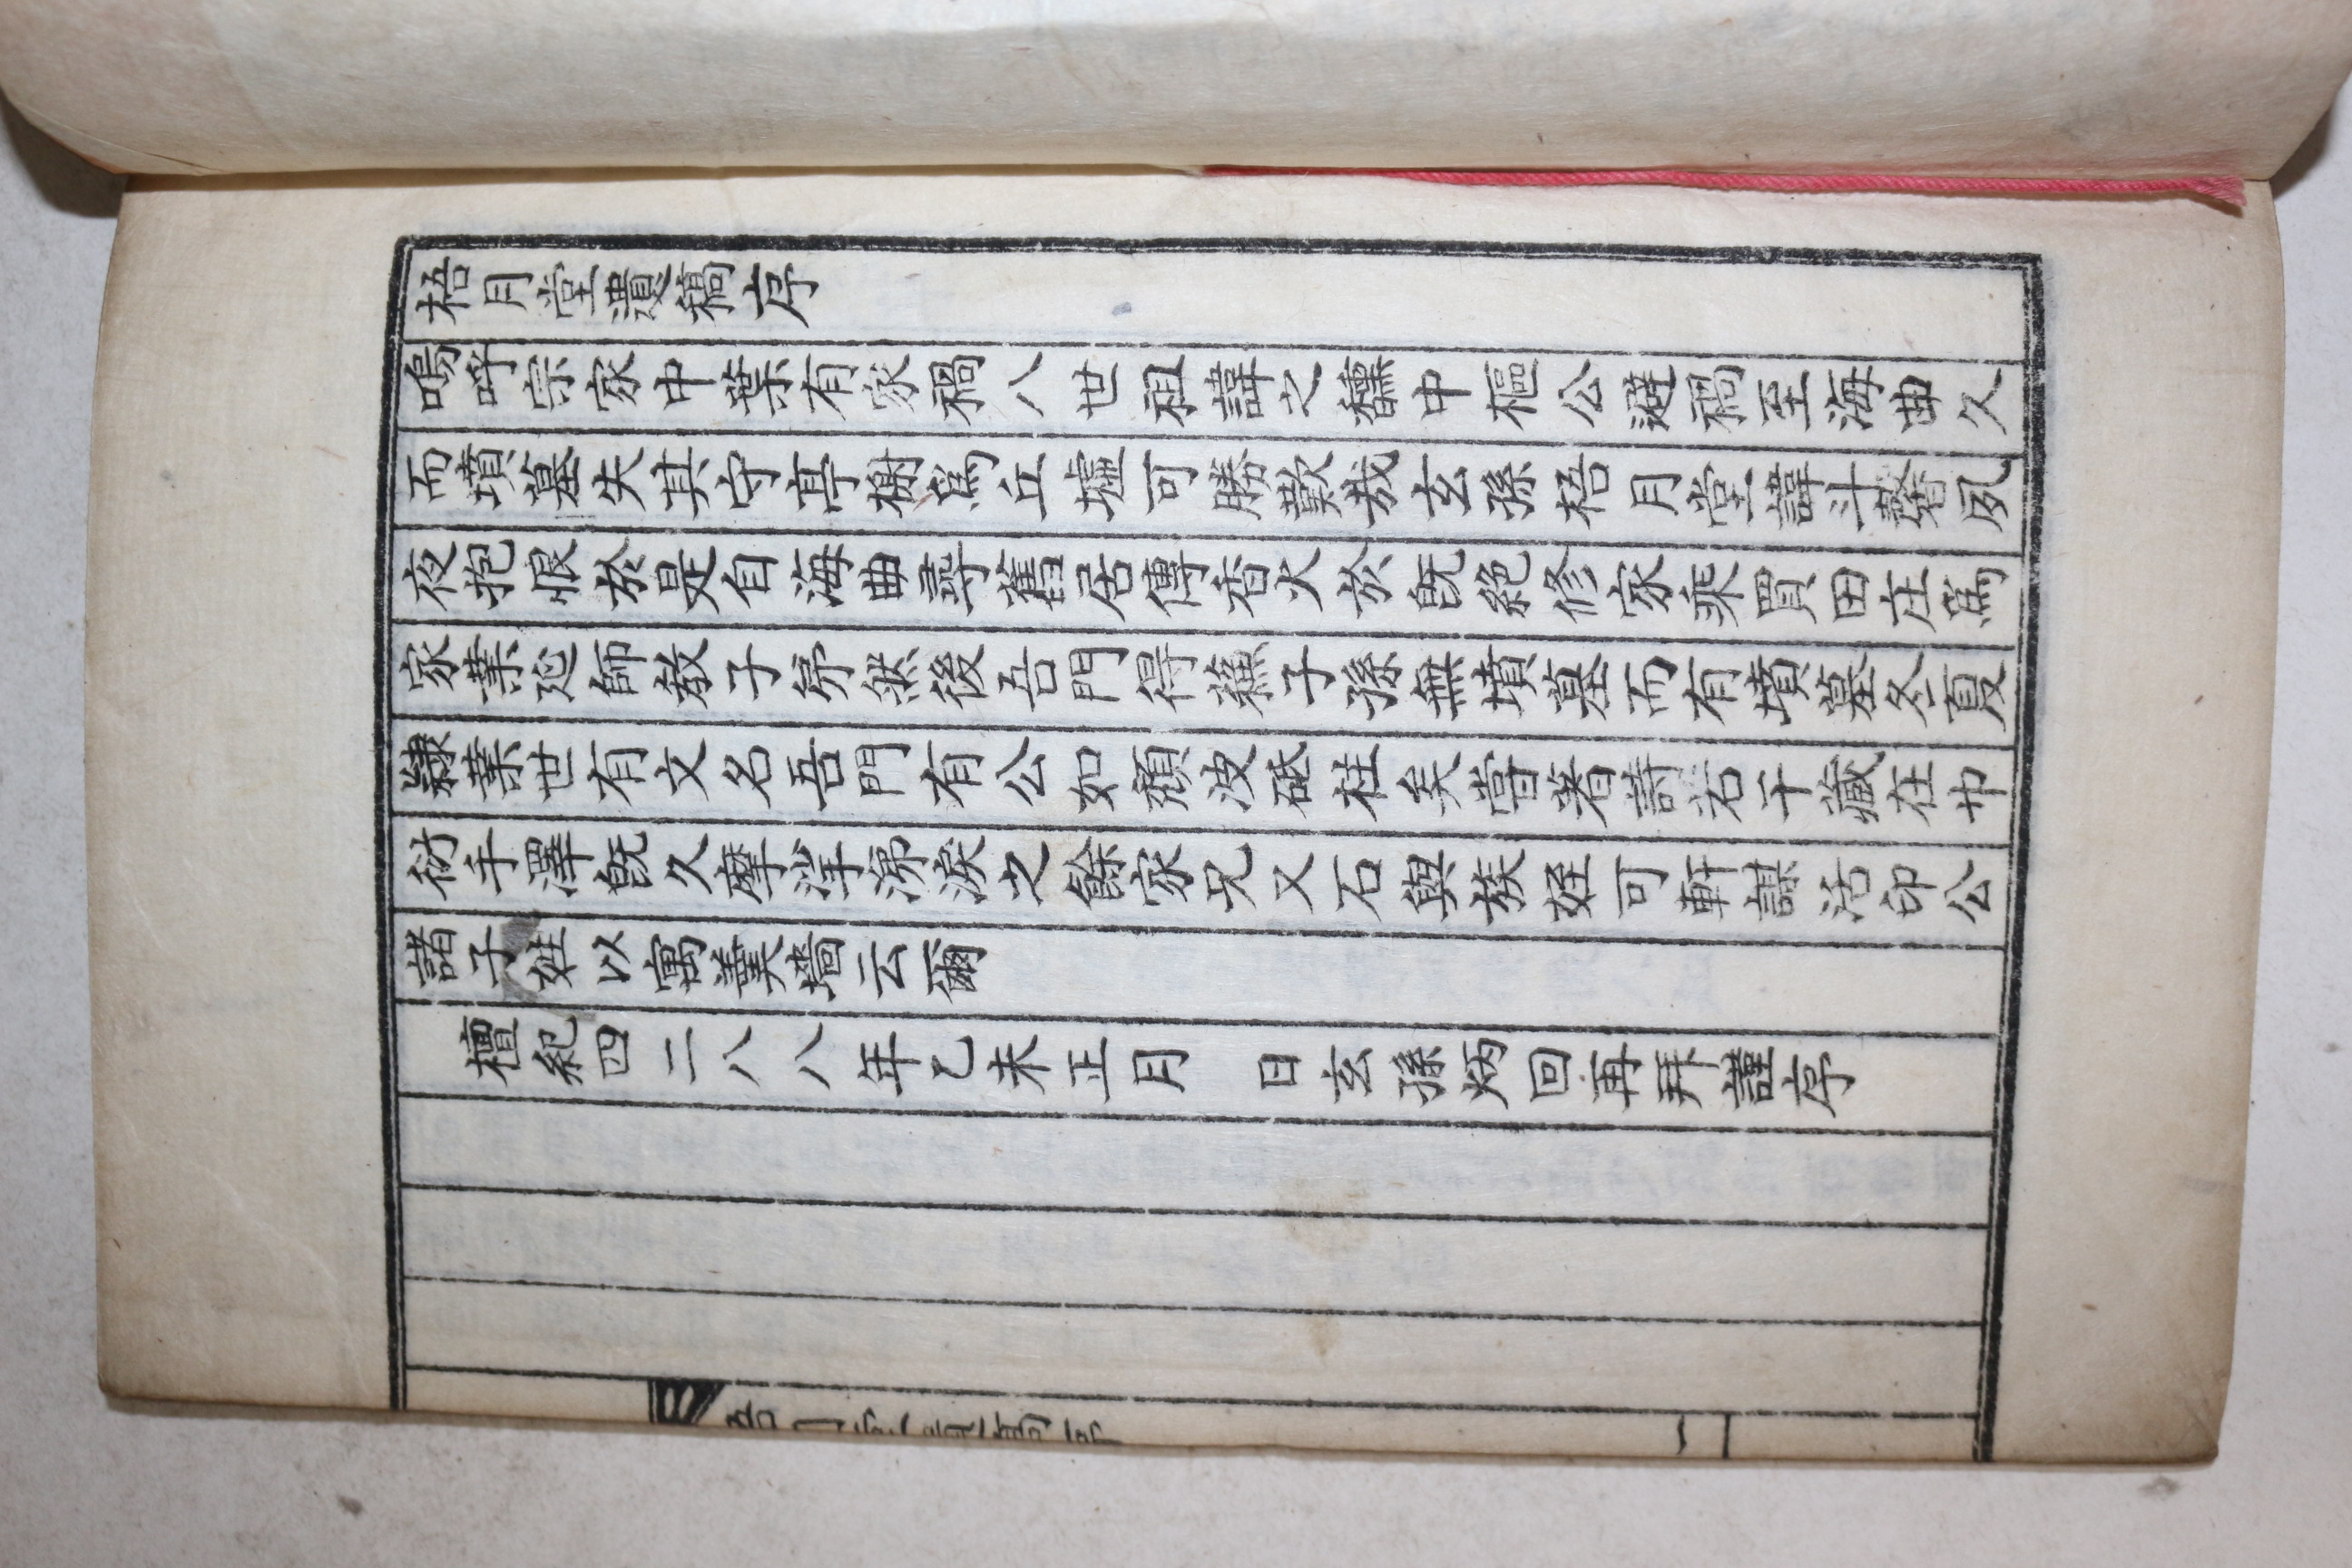 梧月堂遺稿序
嗚呼宗家中葉有家禍八世祖諱之馨中樞公避禍至海曲久
而墳墓失其守亭榭爲丘墟可勝歎哉玄孫梧月堂諱斗馨夙
夜抱恨於是自海曲尋舊居傳香火於旣絶修家乘買田庄爲
家業延師敎子弟然後吾門得蘓子孫無墳墓而有墳墓冬夏
隷業世有文名吾門有公如頹波砥柱矣嘗著詩若干藏在巾
衍手澤旣久摩挲涕淚之餘家兄又石與族姪可軒謀活印公
諸子姪以寓羹墻云爾
檀紀四二八八年乙未正月 日玄孫炳回再拜謹序